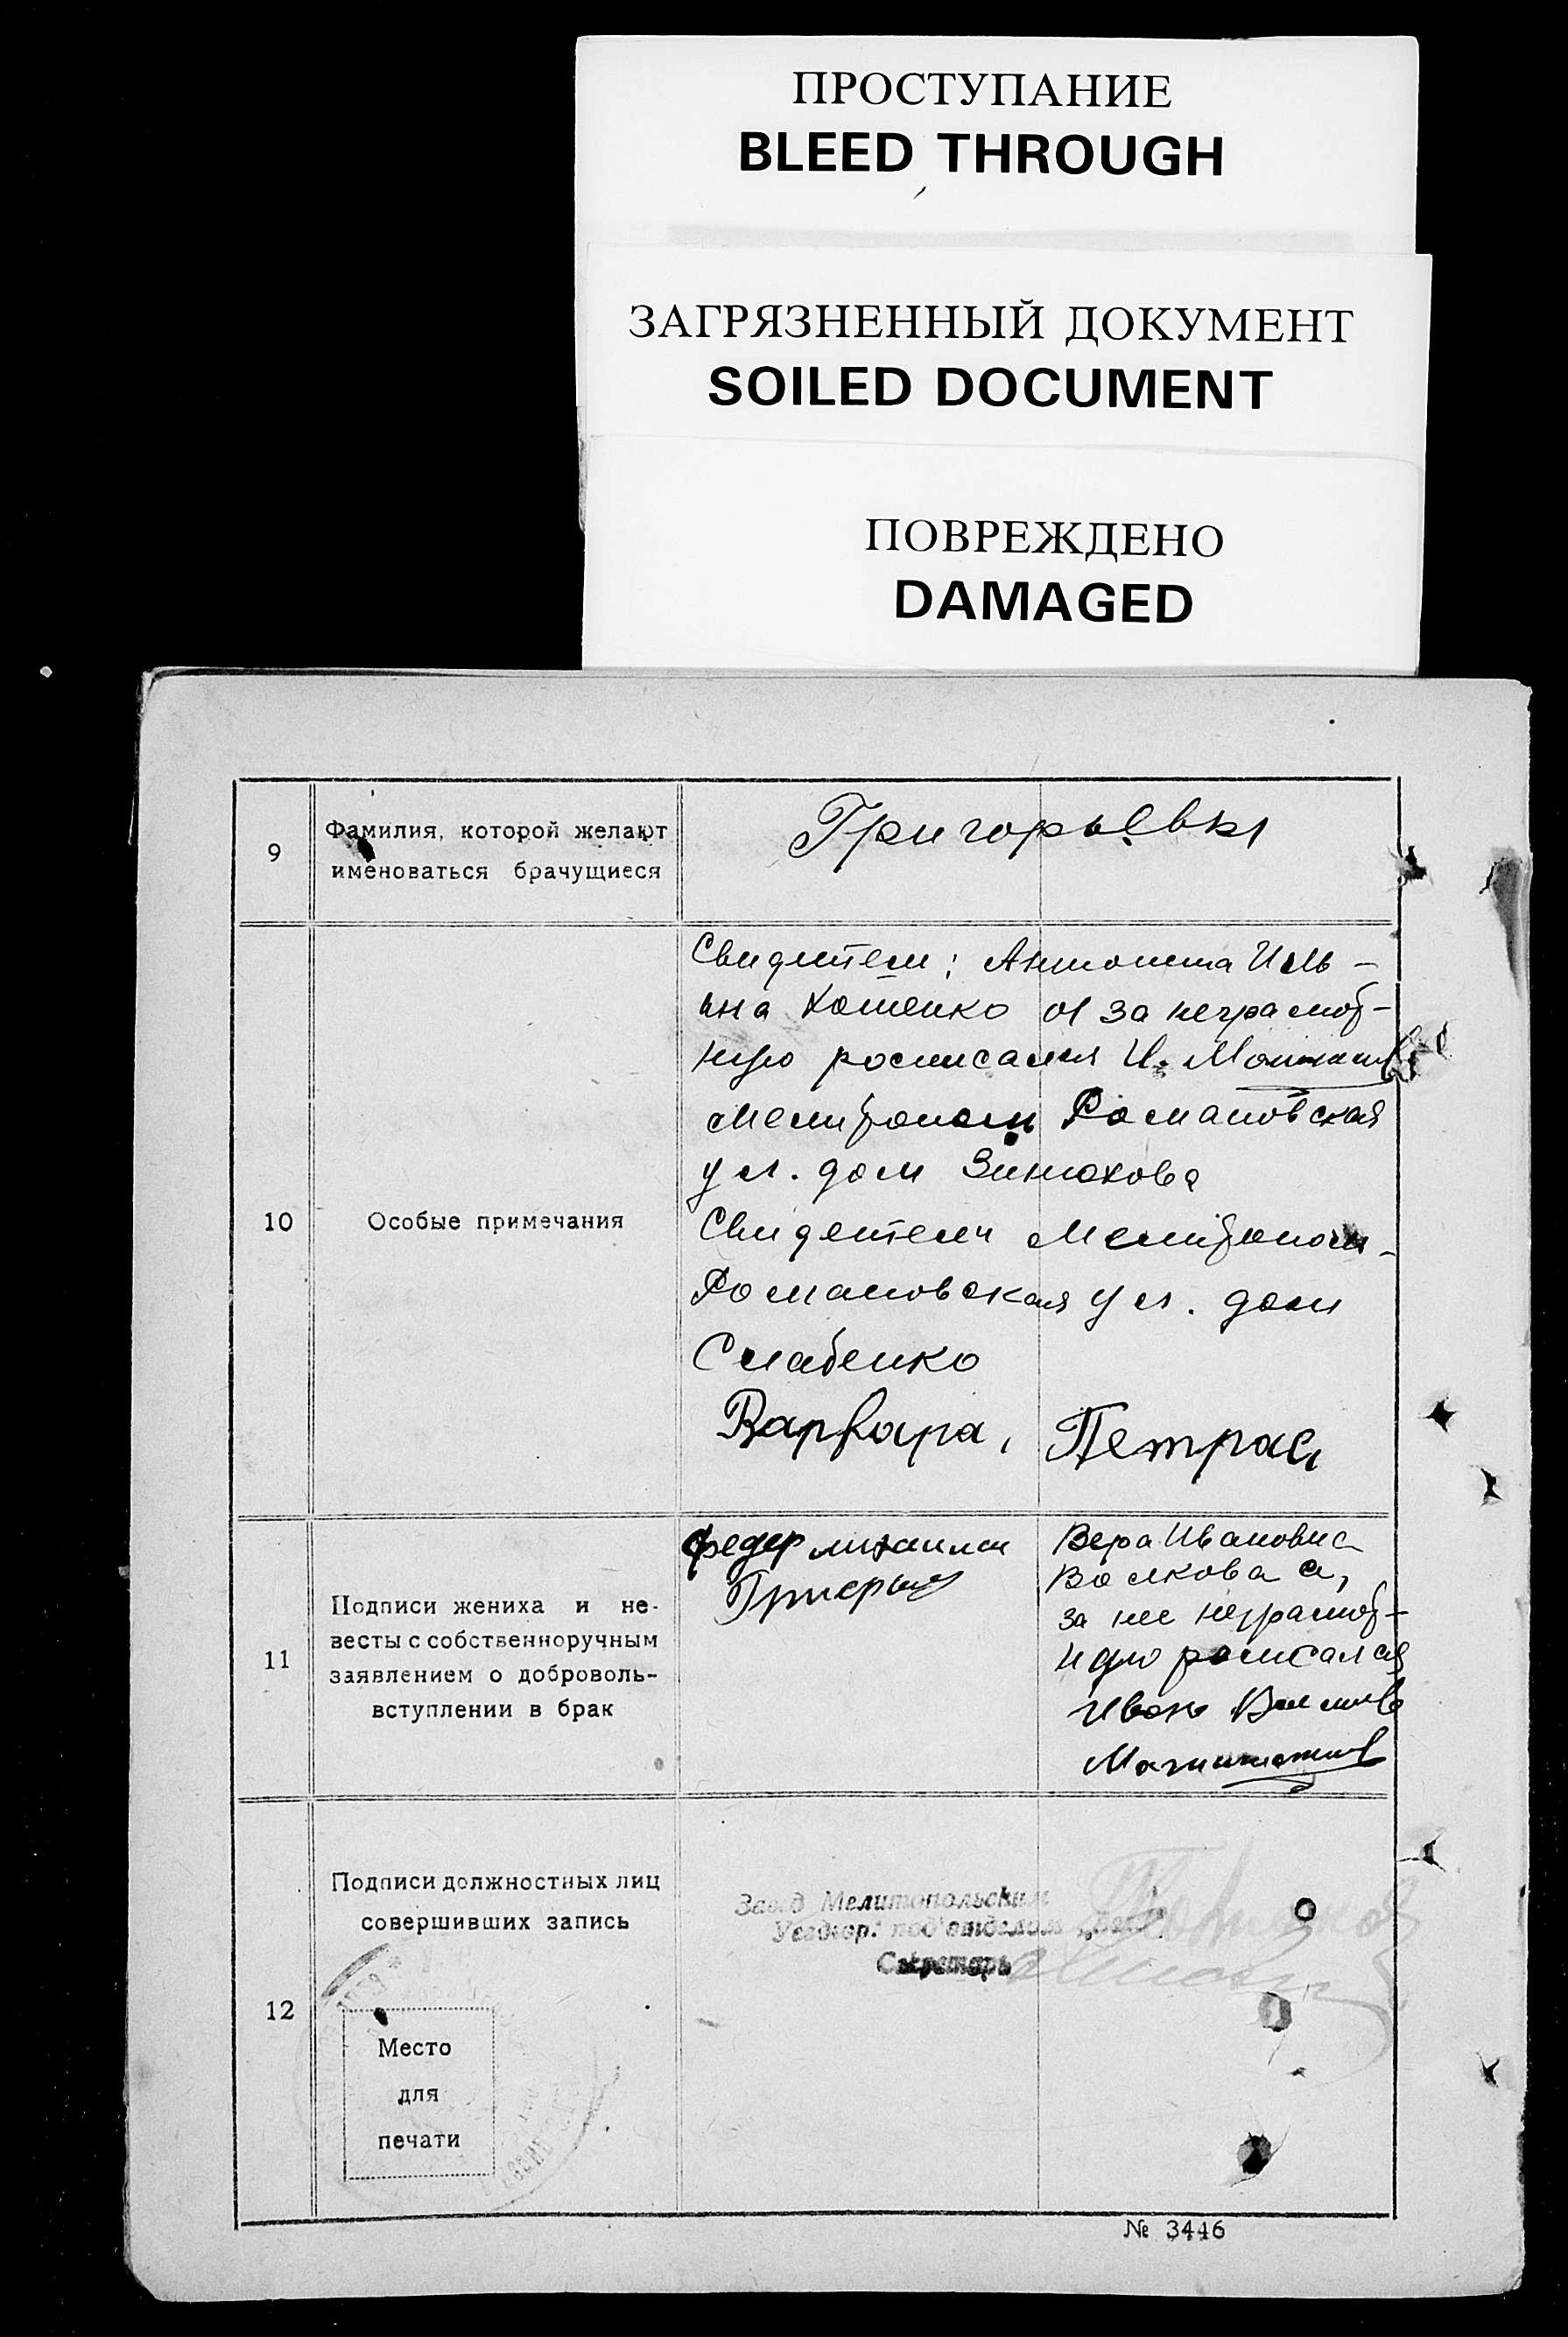 ПРОСТУПАНИЕ
BLEED THROUGH
ЗАГРЯЗНЕННЫЙ ДОКУМЕНТ
SOILED DOCUMENT
ПОВРЕЖДЕНО
DAMAGED
9
Фамилия, которой желают
именоваться брачущиеся
Григорьевы
10
Особые примечания
Свидители; Иль-
ина Котенко за неграмот-
ную росписался И.
Мелитополь Романовская
ул. дом Зинюхова
Свидетели Мелитополь
Романовская ул. дом
Слабенко
Варвара, Петрас
11
Подписи жениха и не-
весты с собственноручным
заявлением о доброволь-
вступлении в брак
федер михаили
Вера Ивановна
Волкова а,
за нее неграмот-
ную росписался
Иван
12
Подписи должностных лиц
совершивших запись
Место
для
печати
Завед Мелитопольским
Уездгор. под'отделом
Секретарь
№ 3446